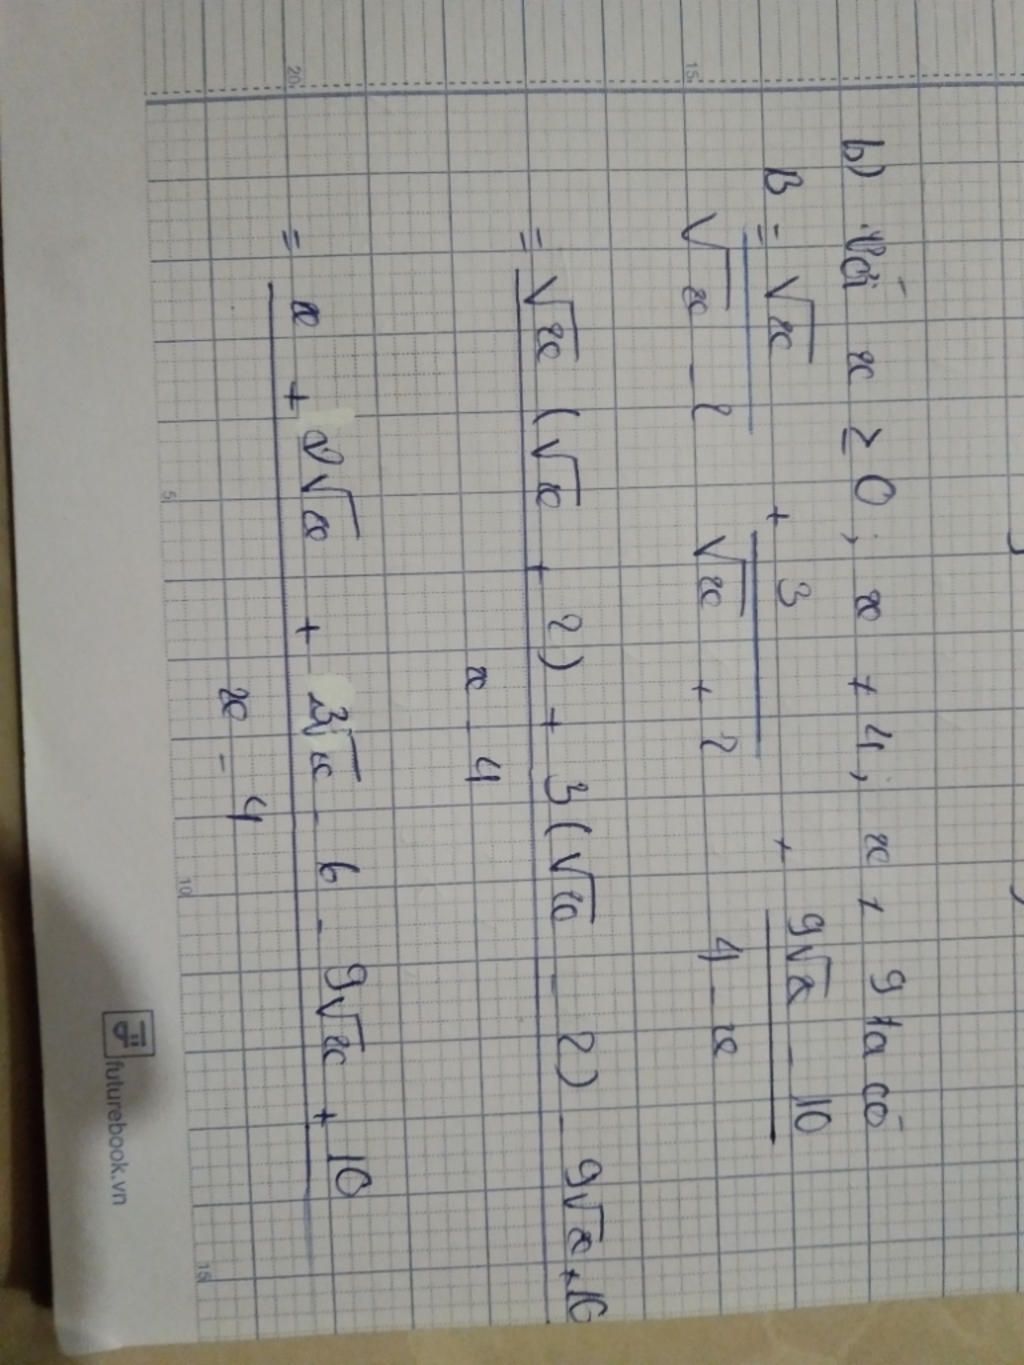 b) Với x ≥ 0; x ≠ 4; x ≠ 9 ta có
B = √x / (√x - 2) + 3 / (√x + 2) + (9√x - 10) / (4 - x)
= (√x (√x + 2) + 3(√x - 2) - 9√x + 10) / (x - 4)
= (x + 2√x + 3√x - 6 - 9√x + 10) / (x - 4)
15
20
5
10
15
futurebook.vn